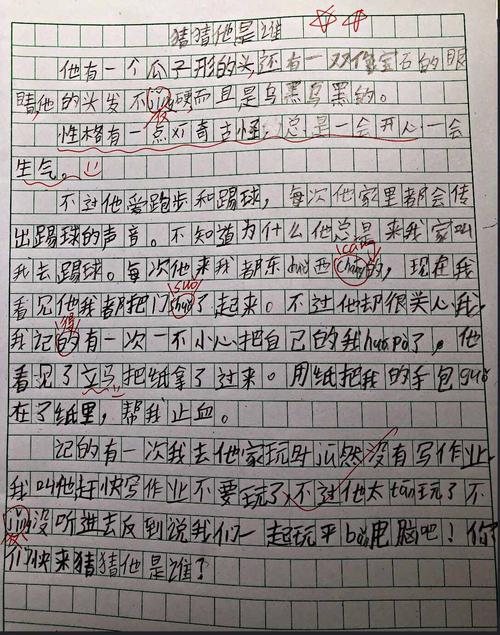 猜猜他是谁
他有一个瓜子形的头,还有一双像宝石的眼
睛,他的头发不jing硬而且是乌黑乌黑的。
性格有一点对奇古怪 总是一会开心一会
生气。
不过他爱跑步和踢球,每次他家里都会传
出踢球的声音。不知道为什么他总是来我家叫
cang
我去踢球。每次他来我都东duo西chang的,现在我
suo
看见他我都把门shuo了起来。不过他却很关心我。
得
我记的有一次一不小心把自己的我huapo了,他
看见了立马把纸拿了过来。用纸把我的手包guo
在了纸里,帮我止血。
记的有一次我去他家玩时ju然没有写作业
我叫他赶快写作业不要玩了,不过他太tan玩了不
jing没听进去反到说我们一起玩平ban电脑吧!你
们快来猜猜他是谁?